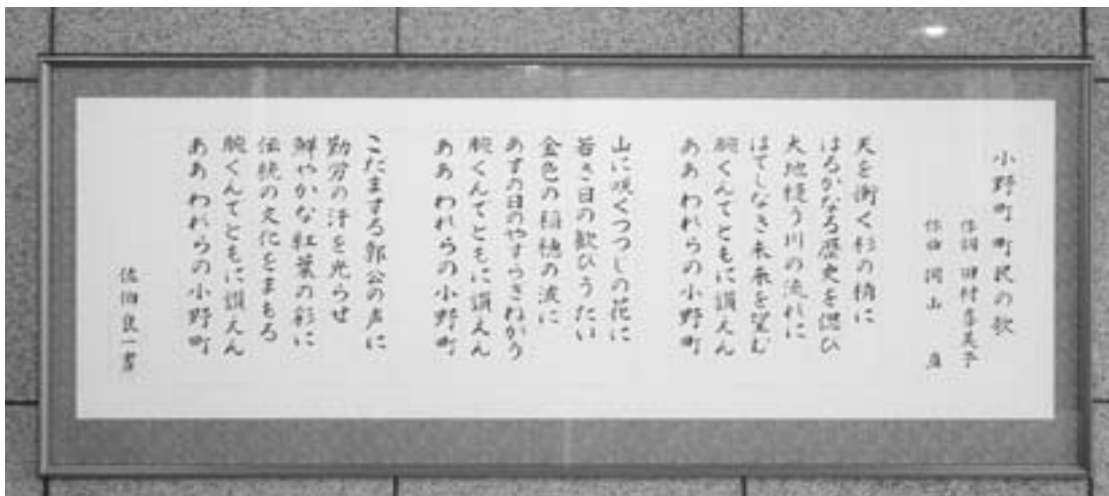 小野町 町民の歌
作詞 田村喜美子
作曲 岡山 直
天を衝く杉の梢に
はるかなる歴史を偲ひ
大地縫う川の流れに
はてしなき未来を望む
腕くんでともに讃えん
ああ われらの小野町
山に咲くつつじの花に
若き日の歓びうたい
金色の稲穂の波に
あすの日のやすらぎねがう
腕くんでともに讃えん
ああ われらの小野町
こだまする郭公の声に
勤労の汗を光らせ
鮮やかな紅葉の彩に
伝統の文化をまもる
腕くんでともに讃えん
ああ われらの小野町
佐伯良一書